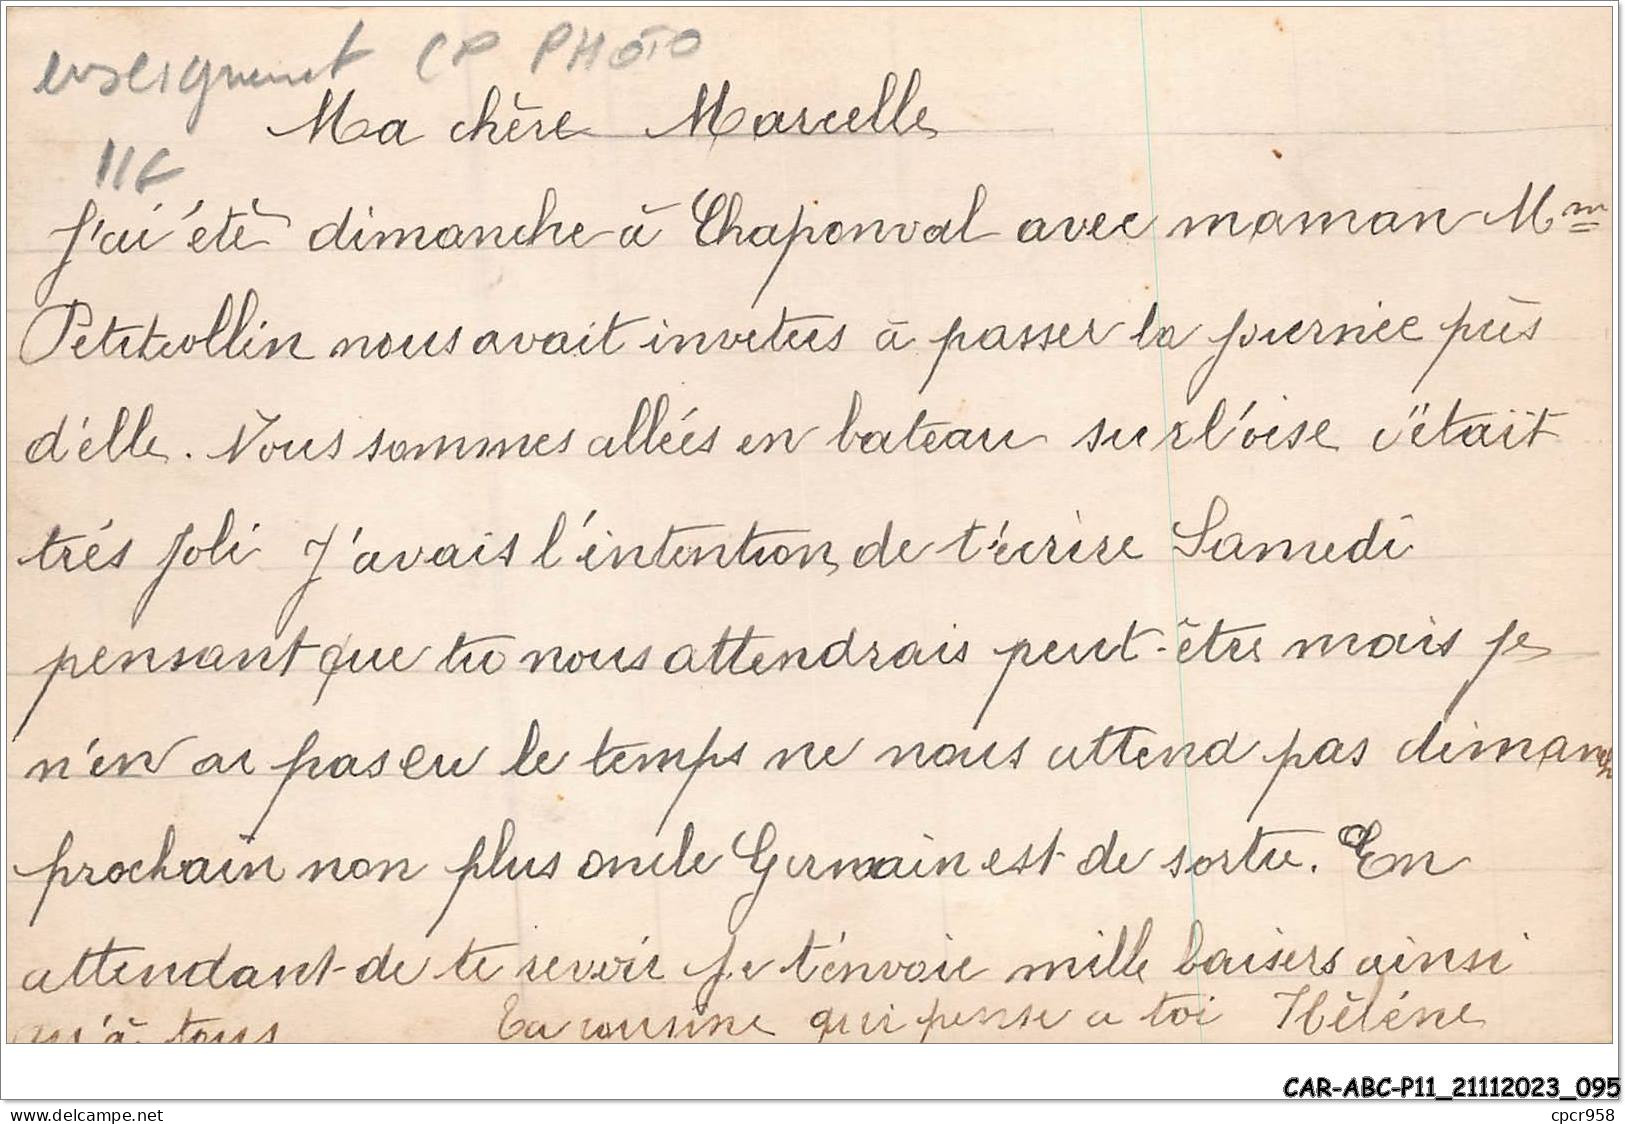 enseignemet CP PHOTO
Ma chère Marcelle
11f
J'ai été dimanche à Chaponval avec maman Mm
Petitcollin nous avait invetées à passer la journée près
d'elle. Nous sommes allées en bateau sur l'oise c'était
trés joli J'avais l'intention de t'écrire Samedi
pensant que tu nous attendrais peut-être mais je
n'en ai pas eu le temps ne nous attend pas dimanch
prochain non plus oncle Germain est de sortie. En
attendant de te revoir je t'envoie mille baisers ainsi
qu'à tous Ta cousine qui pense a toi Hélène
CAR-ABC-P11_21112023_095
www.delcampe.net
cpcr958